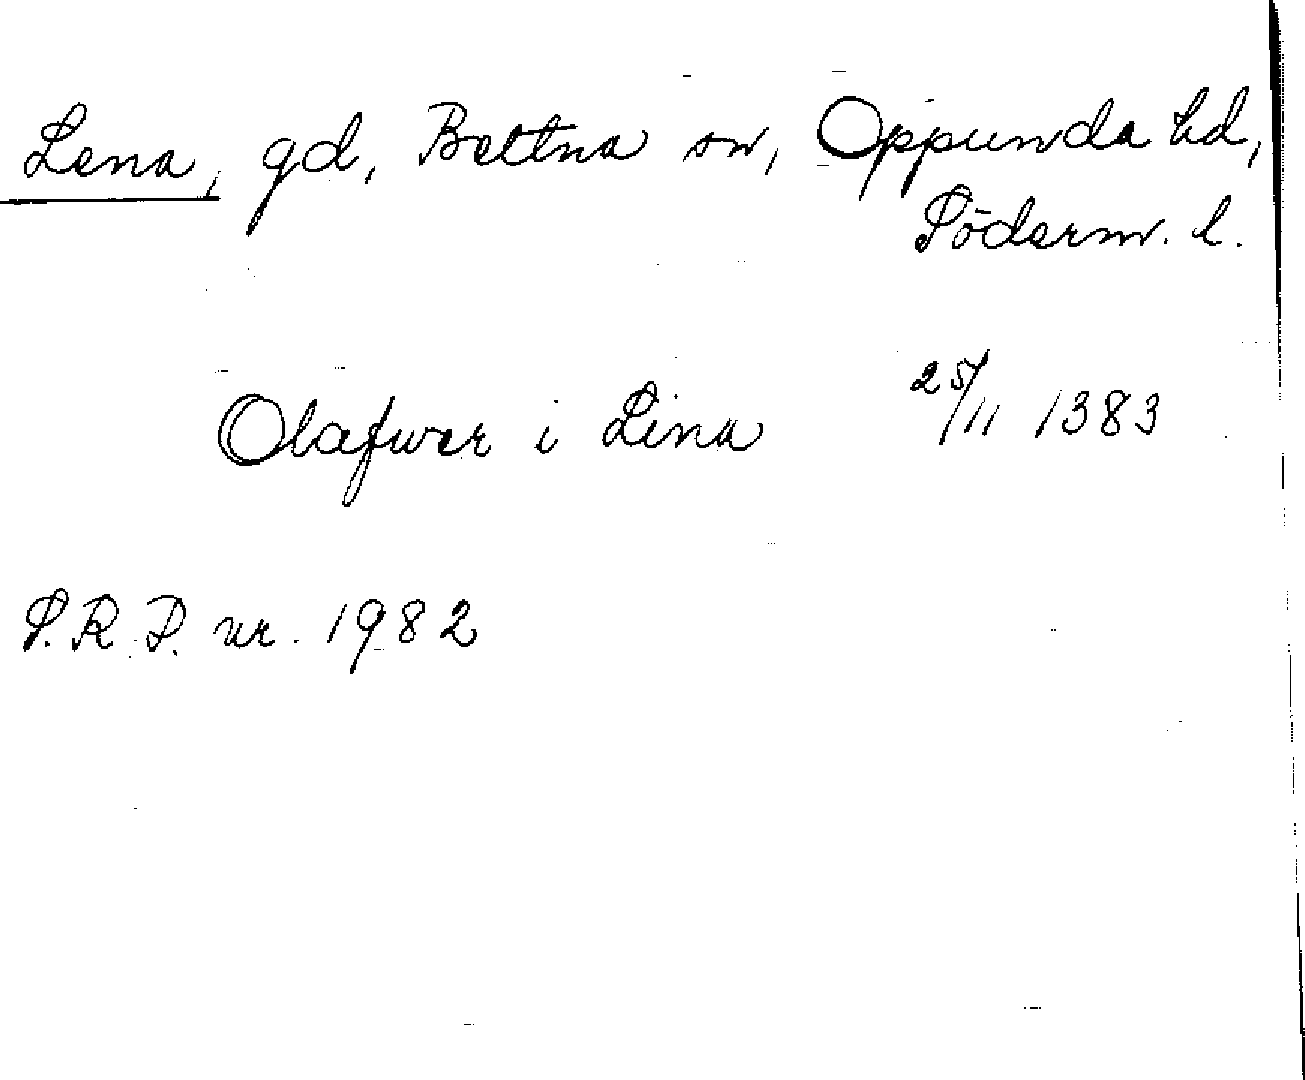 Lena, gd, Bettna sn, Oppunda hd,
Söderm. l.
Olafwer i Lina 25/11 1383
S.R.P. nr. 1982